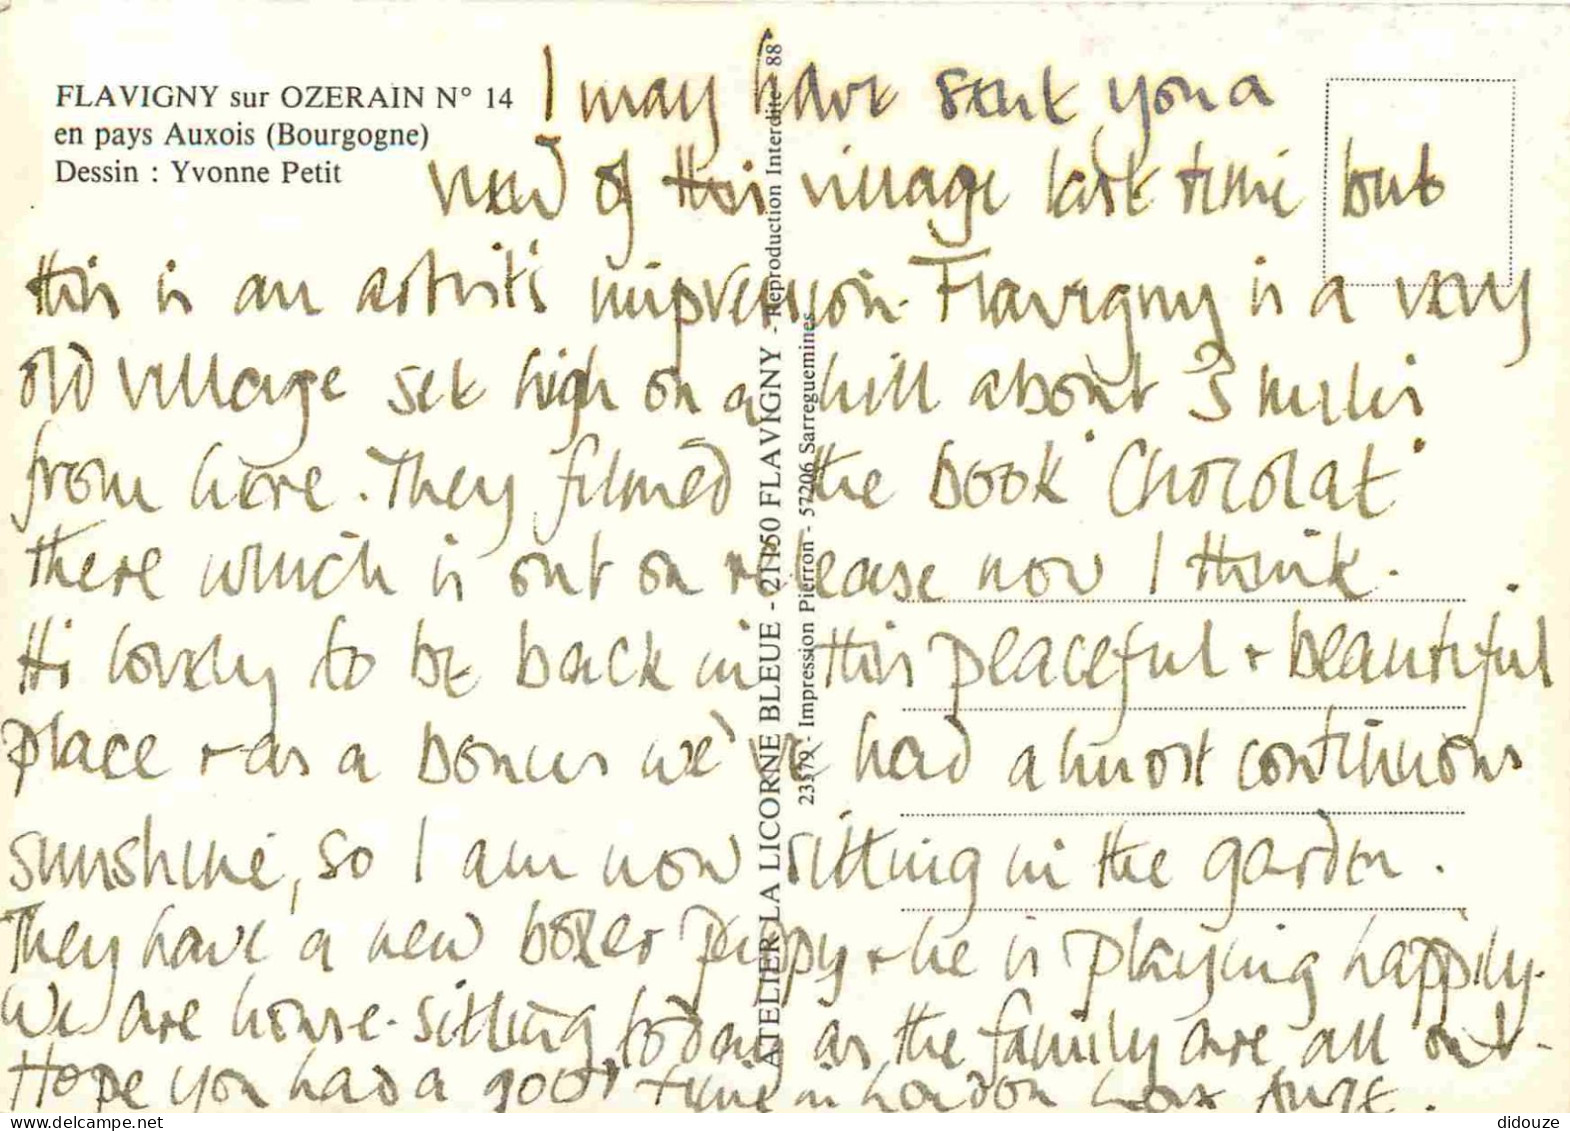 FLAVIGNY sur OZERAIN N° 14
en pays Auxois (Bourgogne)
Dessin : Yvonne Petit
I may have sent you a
view of this village last time but
this is an artist's impression. Flavigny is a very
old village set high on a hill about 3 miles
from here. They filmed the book "Chocolat"
there which is out on release now I think.
It's lovely to be back in this peaceful + beautiful
place + as a bonus we've had almost continuous
sunshine, so I am now sitting in the garden.
They have a new boxer puppy + he is playing happily.
We are house-sitting today as the family are all out.
Hope you had a good time in London
ATELIER LA LICORNE BLEUE - 21150 FLAVIGNY - Reproduction Interdite 88
23379 - Impression Pierron - 57206 Sarreguemines
delcampe.net
didouze